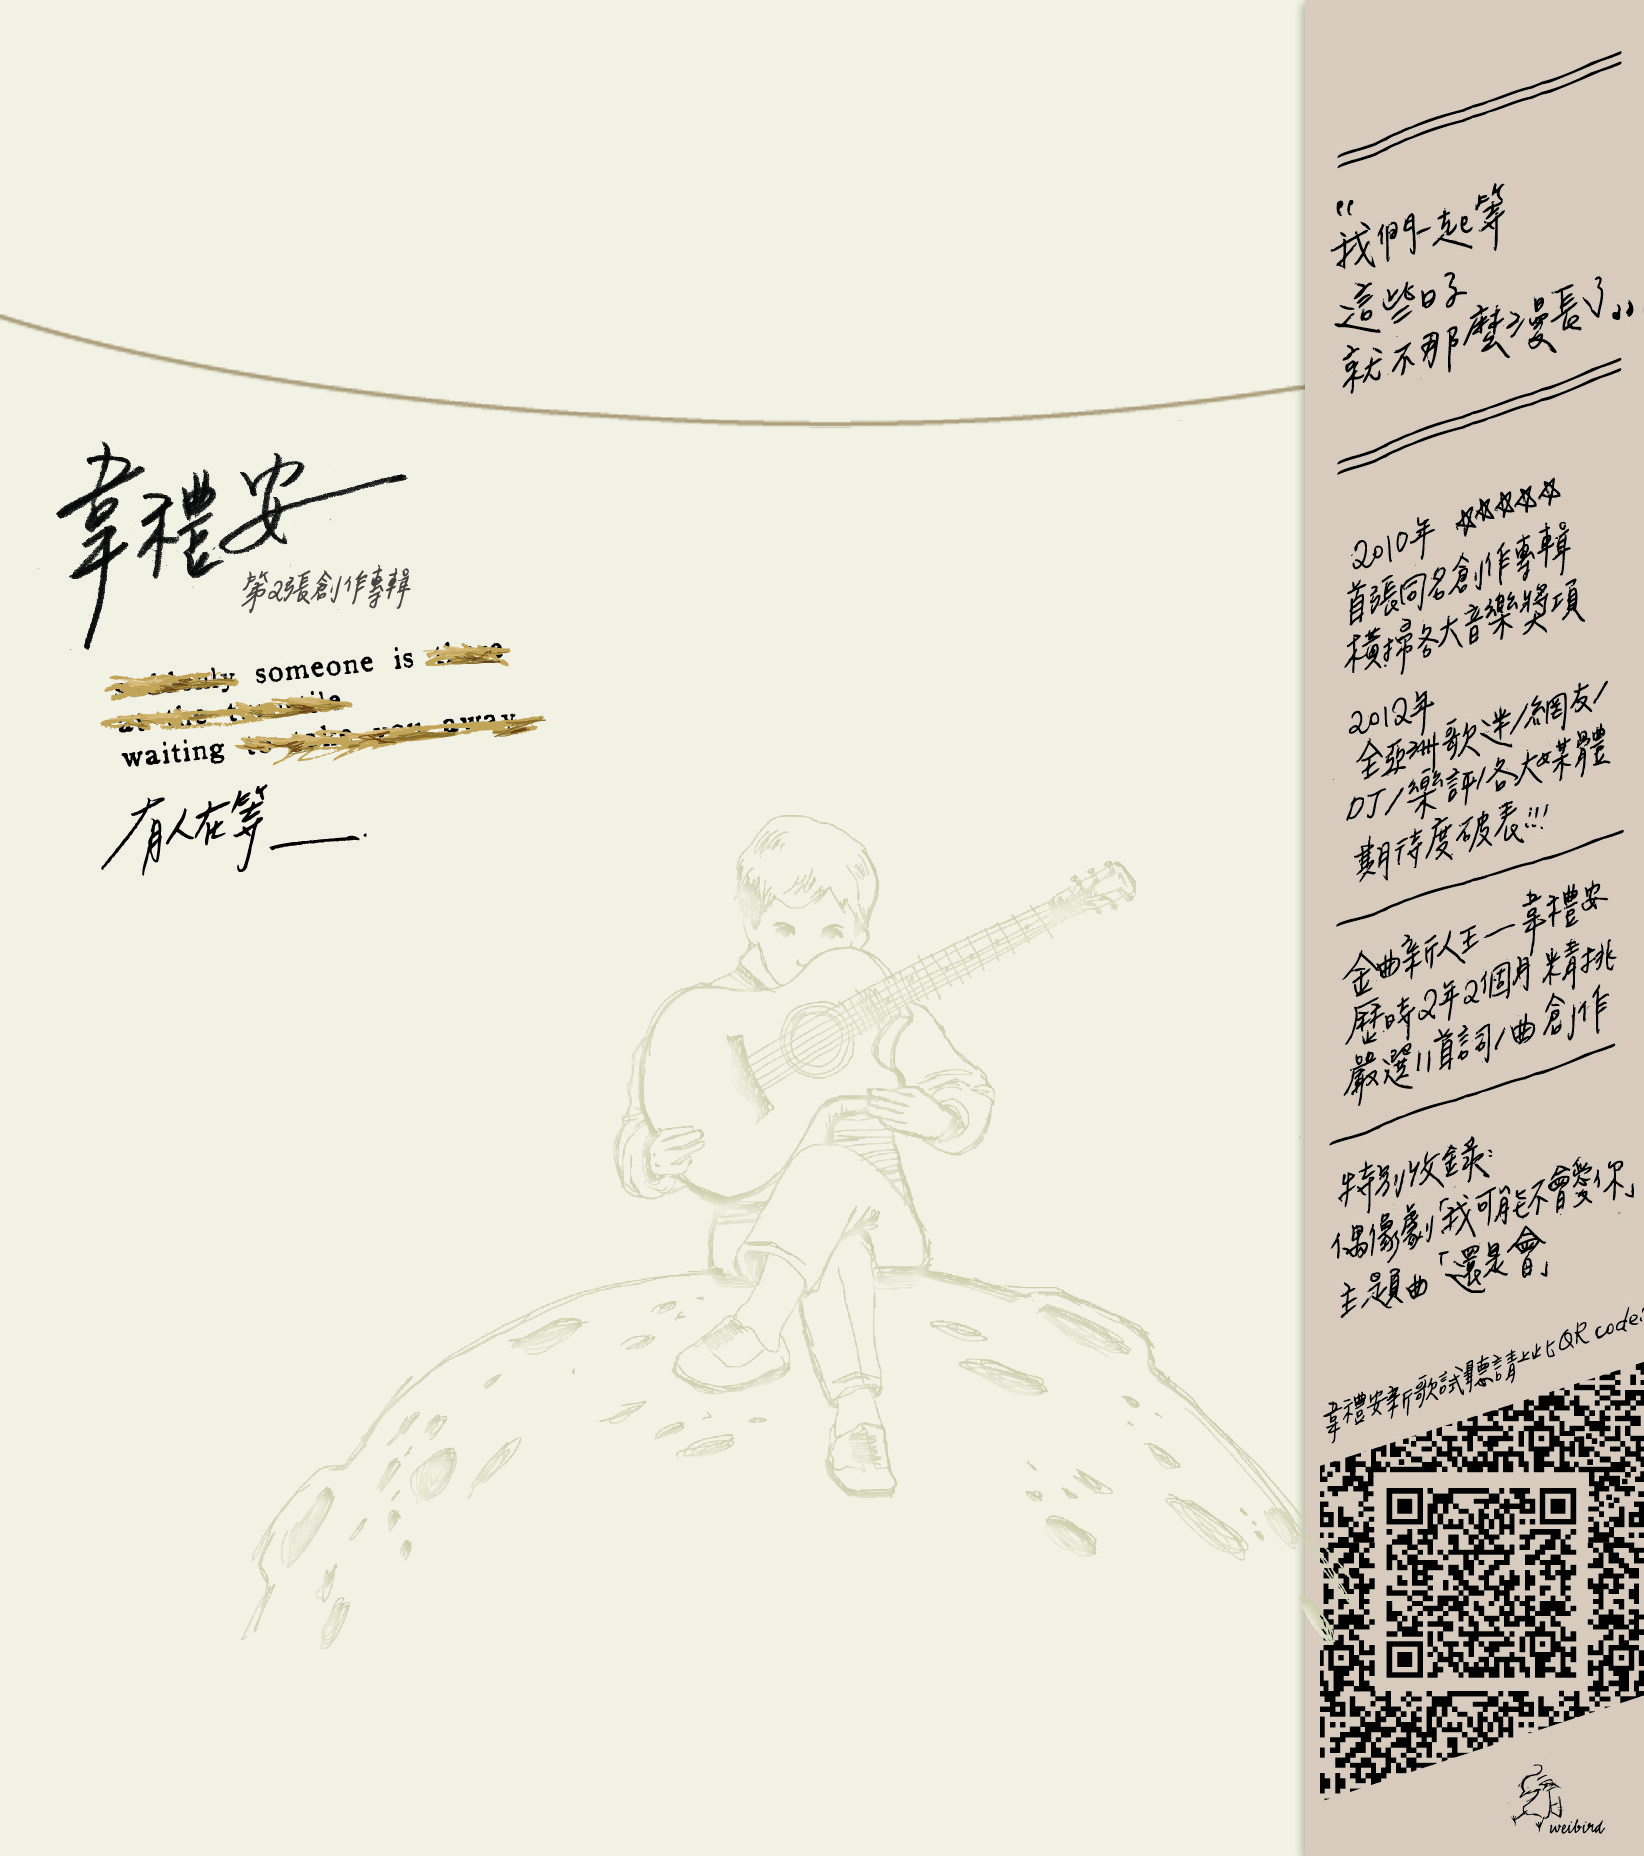 韋禮安
第2張創作專輯
someone is
waiting
有人在等
"我們一起等
這些日子
就不那麼漫長了"
2010年 ☆☆☆☆☆
首張同名創作專輯
橫掃各大音樂獎項
2012年
全亞洲歌迷/網友/
DJ/樂評/各大媒體
期待度破表!!!
金曲新人王—韋禮安
歷時2年2個月精挑
嚴選11首詞/曲創作
特別收錄:
偶像劇「我可能不會愛你」
主題曲「還是會」
韋禮安新歌試聽請上此QR code:
weibird